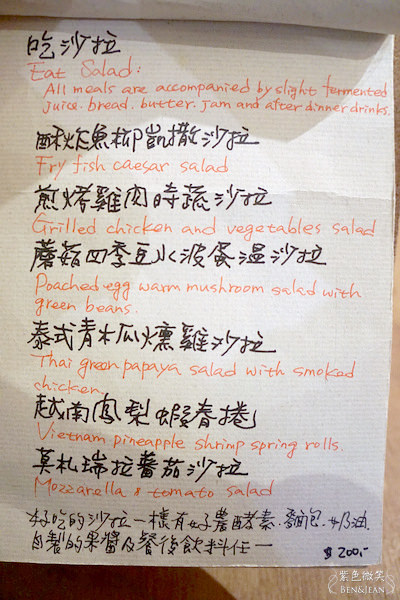 吃沙拉
Eat Salad:
All meals are accompanied by slight fermented
juice. bread. butter. Jam and after dinner drinks.
酥炸魚柳凱撒沙拉
Fry fish caesar salad
煎烤雞肉時蔬沙拉
Grilled chicken and vegetables salad
蘑菇四季豆水波蛋溫沙拉
Poached egg warm mushroom salad with
green beans.
泰式青木瓜燻雞沙拉
Thai green papaya salad with smoked
chicken
越南鳳梨蝦春捲
Vietnam pineapple shrimp spring rolls.
莫札瑞拉蕃茄沙拉
Mozzarella & tomato salad
好吃的沙拉一樣有好農酵素.麵包.奶油.
自製的果醬及餐後飲料任一
$ 200.-
紫色微笑
BEN&JEAN